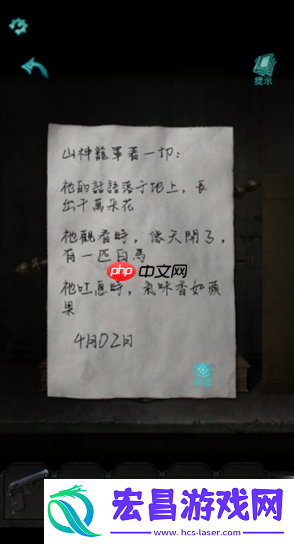 提示
山神籠罩著一切:
祂的話語落于地上，長
出千萬朵花
祂觀看時，像天閉了，
有一匹白馬
祂吐息時，氣味香如蘋
果
php 中文网
4月02日
宏昌游戏网
www.hcs-laser.com